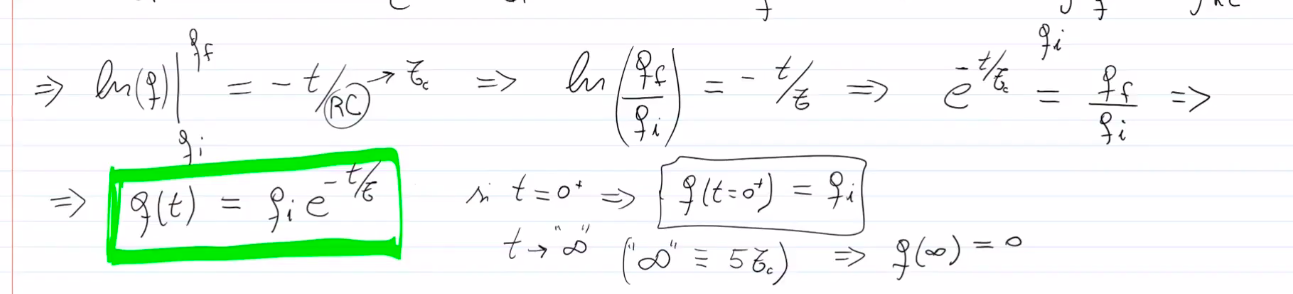 ⇒ ln(q)|_{qi}^{qf} = - t/RC → τc ⇒ ln(qf/qi) = - t/τc ⇒ e^{-t/τc} = qf/qi ⇒
⇒ q(t) = qi e^{-t/τc} si t=0⁺ ⇒ q(t=0⁺) = qi
t → "∞" ("∞" ≡ 5τc) ⇒ q(∞) = 0